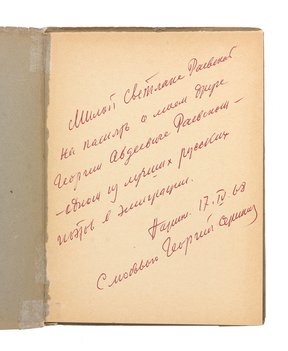 Милой Светлане Раевской
на память о моем друге
Георгии Авдеевиче Раевском —
— одном из лучших русских
поэтов в эмиграции.
Париж. 17. IV 68
С любовью Георгий